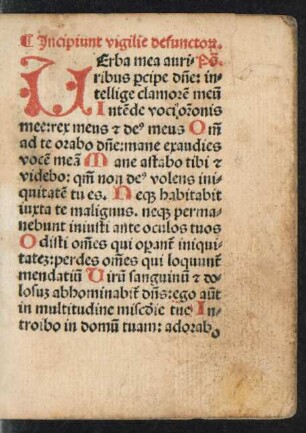 ¶ Incipiunt vigilie defunctoꝝ.
VErba mea auri- Pō.
ribus ꝑcipe dn̄e: in-
tellige clamorē meū
Intēde voci or̄onis
mee: rex meus ⁊ deꝰ meus Qm̄
ad te orabo dn̄e: mane exaudies
vocē meā Mane astabo tibi ⁊
videbo: qm̄ non deꝰ volens ini-
quitatē tu es. Neqꝫ habitabit
iuxta te malignus. neqꝫ perma-
nebunt iniusti ante oculos tuos
Odisti om̄es qui oꝑant̄ iniqui-
tatez: perdes om̄es qui loquunt̄
mendatiū Virū sanguinū ⁊ do-
losuz abhominabit̄ dn̄s: ego aūt
in multitudine misc̄die tue In-
troibo in domū tuam: adorabo